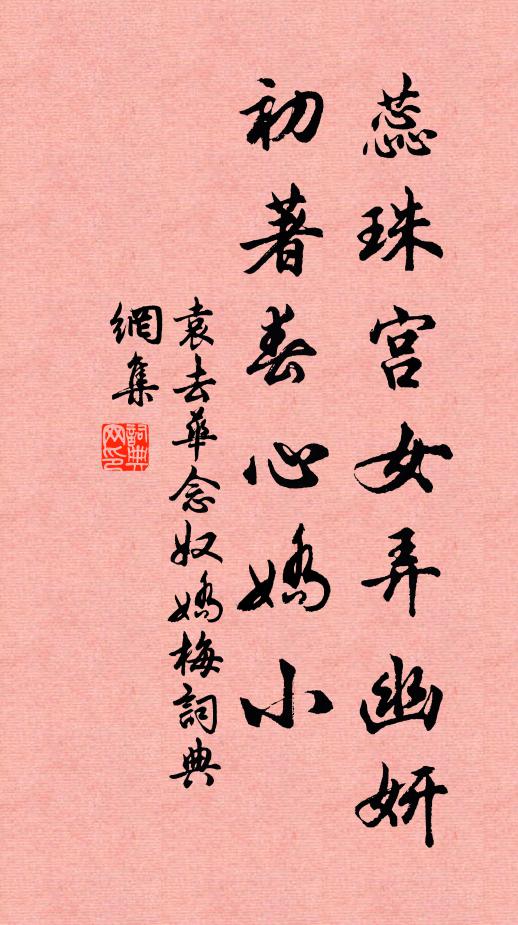 蕊珠宮女弄幽妍
初著春心嬌小
袁去華念奴嬌梅詞典
網集
詞典
網印